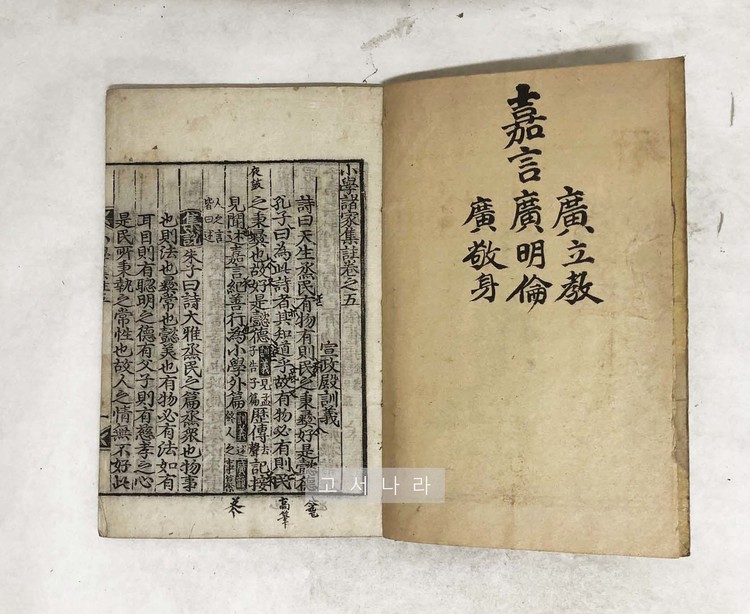 嘉言
廣立教
廣明倫
廣敬身
小學諸家集註卷之五
宣政殿訓義
詩曰天生烝民有物有則民之秉彝好是懿德
孔子曰為此詩者其知道乎故有物必有則民
之秉彝也故好是懿德訓義見孟子告子篇歷傳記接
見聞述嘉言紀善行為小學外篇訓義
人之言皆曰述
集說朱子曰詩大雅烝民之篇烝衆也物事
也則法也彝常也懿美也有物必有法如有
耳目則有聰明之德有父子則有慈孝之心
是民所秉執之常性也故人之情無不好此
고서나라